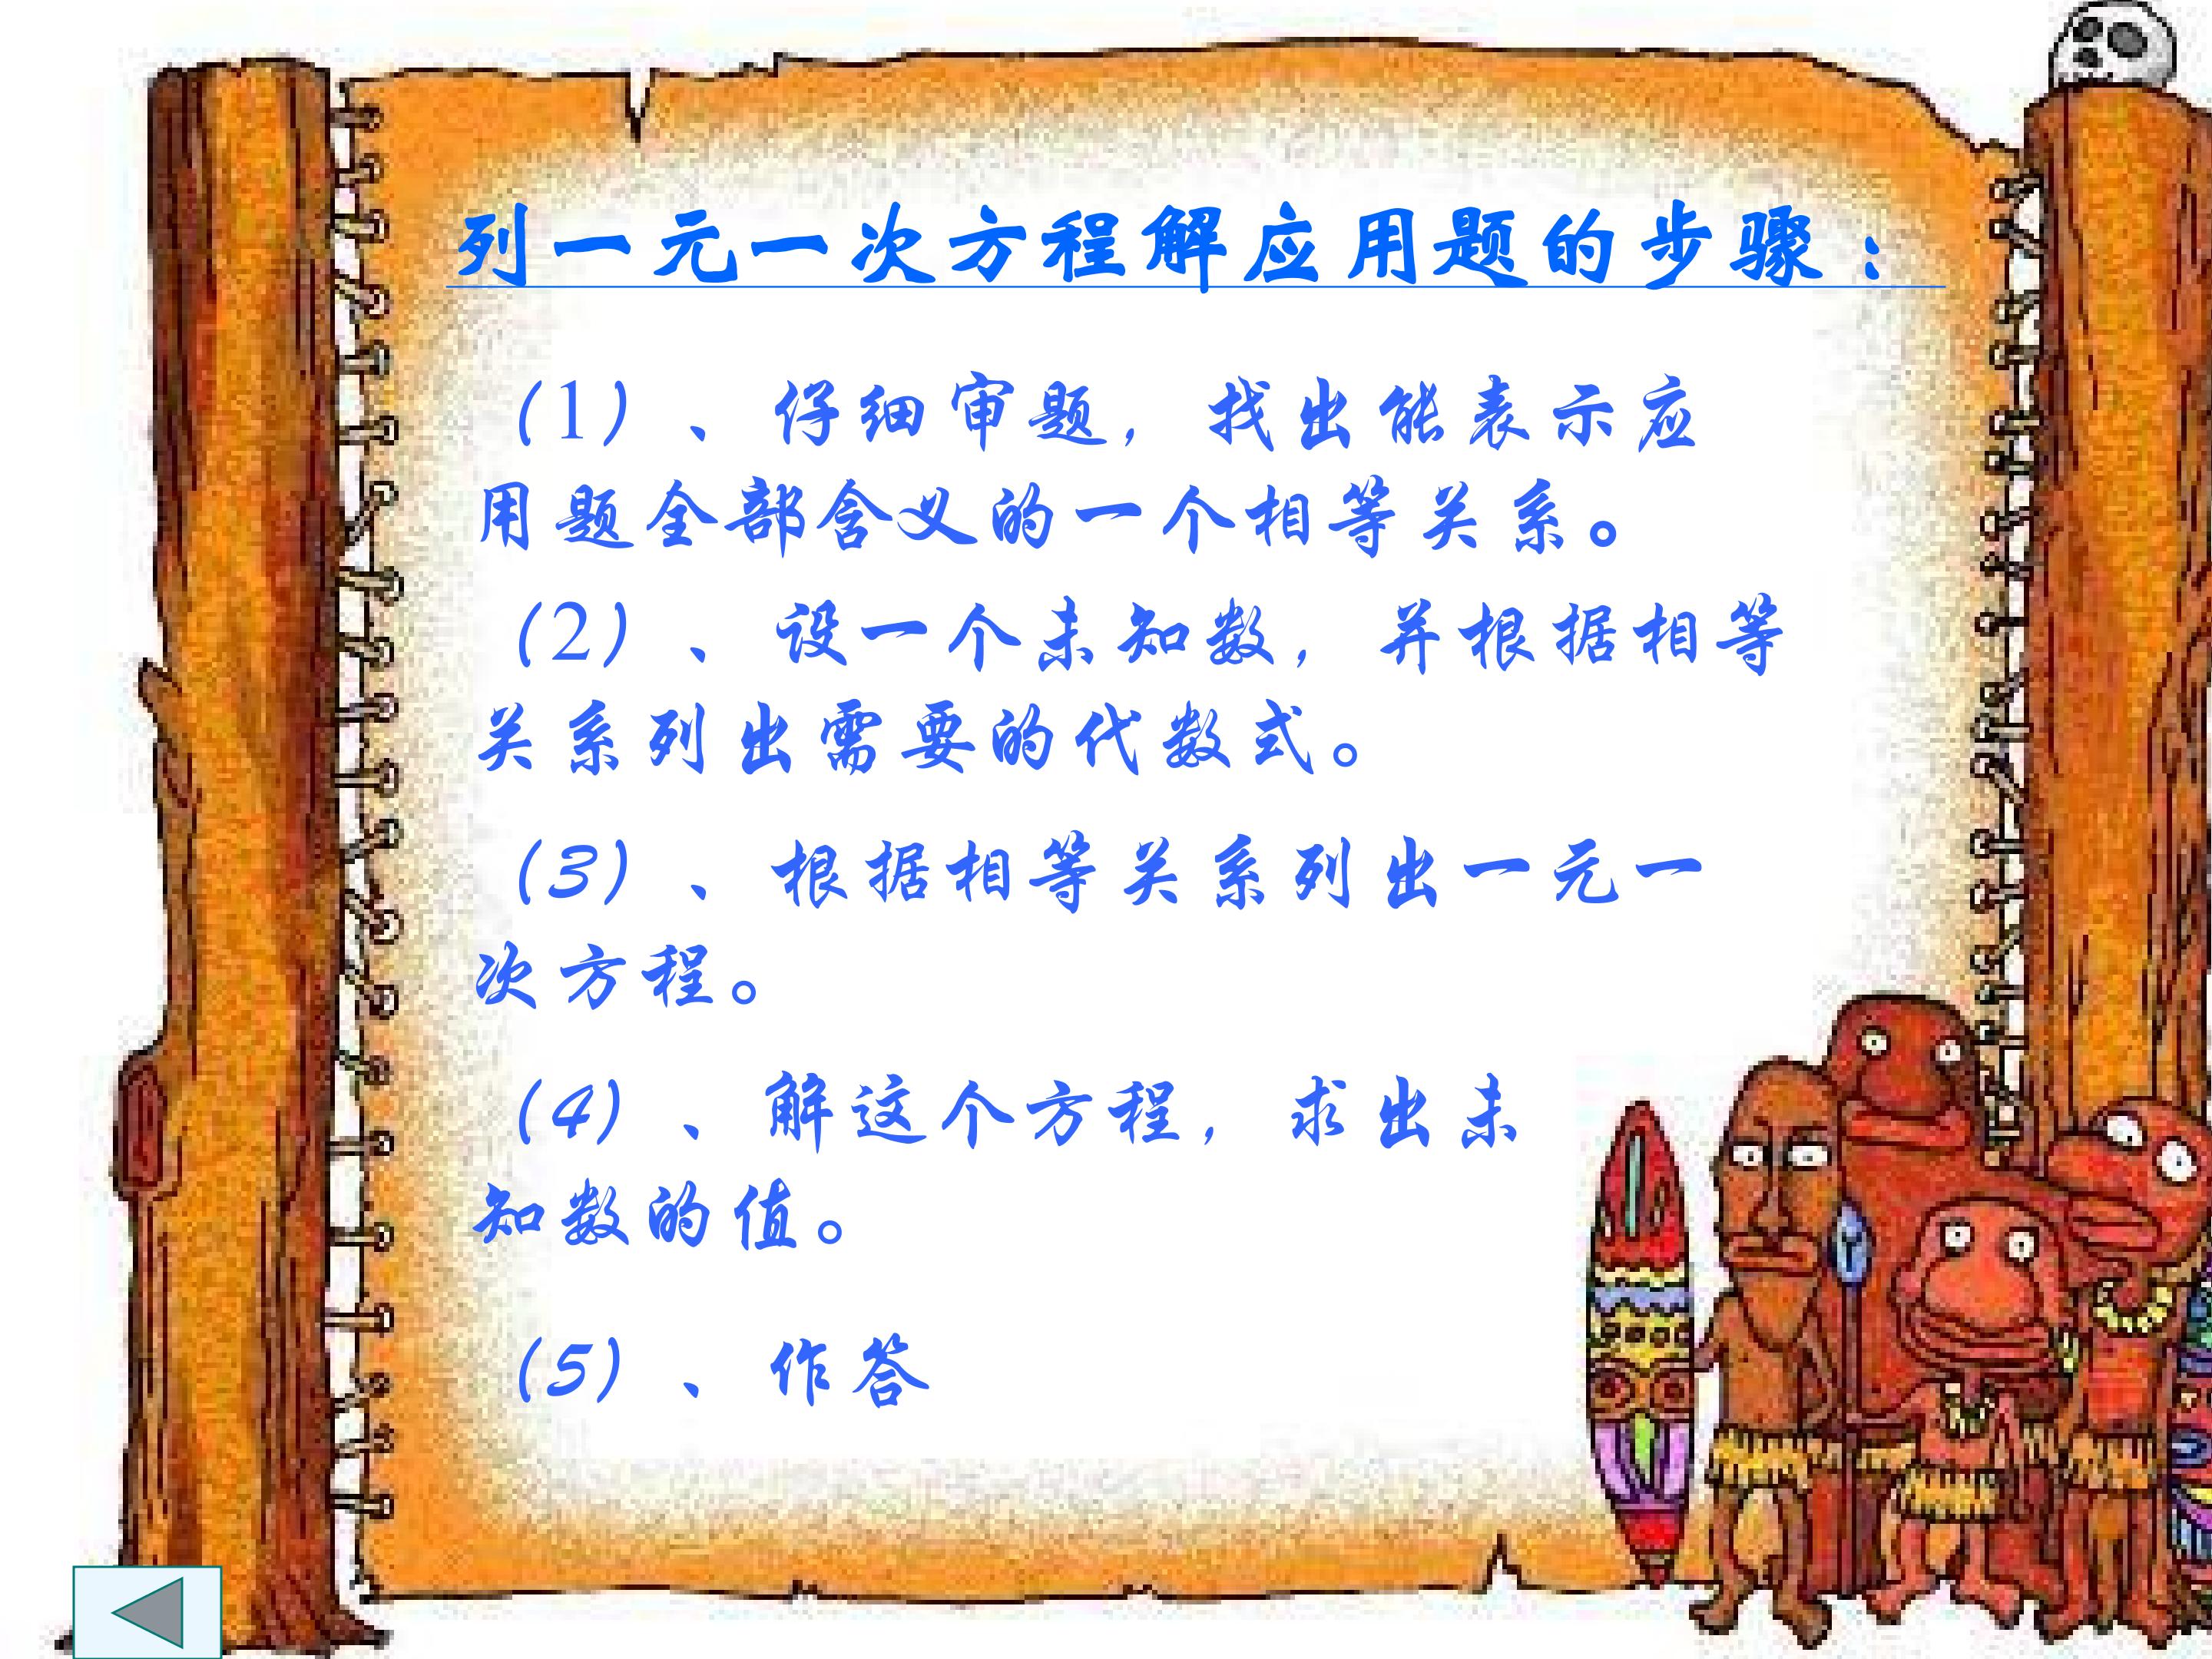 列一元一次方程解应用题的步骤：
（1）、仔细审题，找出能表示应
用题全部含义的一个相等关系。
（2）、设一个未知数，并根据相等
关系列出需要的代数式。
（3）、根据相等关系列出一元一
次方程。
（4）、解这个方程，求出未
知数的值。
（5）、作答